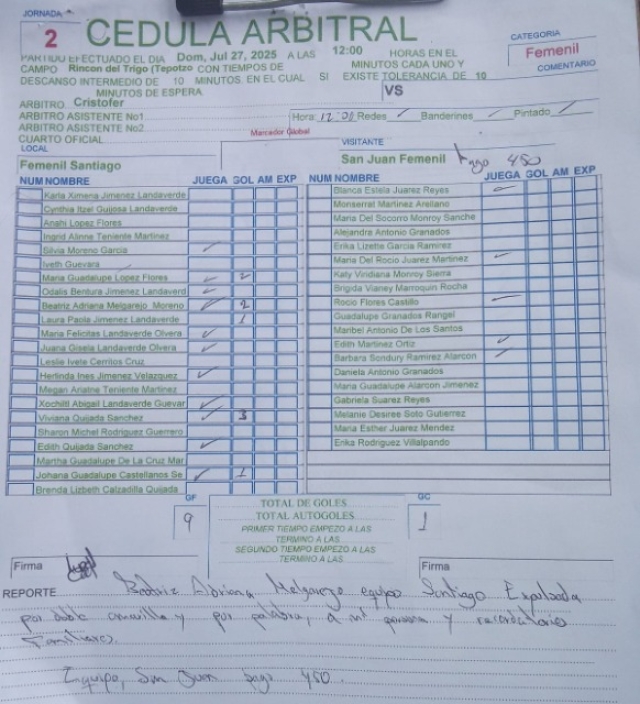 JORNADA
2
CEDULA ARBITRAL
CATEGORIA
Femenil
PARTIDO EFECTUADO EL DIA Dom, Jul 27, 2025 A LAS 12:00 HORAS EN EL
CAMPO Rincon del Trigo (Tepotzo CON TIEMPOS DE MINUTOS CADA UNO Y
COMENTARIO
DESCANSO INTERMEDIO DE 10 MINUTOS. EN EL CUAL SI EXISTE TOLERANCIA DE 10
MINUTOS DE ESPERA
VS
ARBITRO. Cristofer
ARBITRO ASISTENTE No1
Hora: 12:00 Redes ✓ Banderines ✓ Pintado ✓
ARBITRO ASISTENTE No2
CUARTO OFICIAL
Marcador Global
LOCAL
VISITANTE
Femenil Santiago
San Juan Femenil pago 450
NUM NOMBRE JUEGA GOL AM EXP
Karla Ximena Jimenez Landaverde
Cynthia Itzel Guijosa Landaverde
Anahi Lopez Flores
Ingrid Alinne Teniente Martinez
Silvia Moreno Garcia ✓
Iveth Guevara
Maria Guadalupe Lopez Flores ✓ 2
Odalis Bentura Jimenez Landaverd ✓
Beatriz Adriana Melgarejo Moreno ✓ 2
Laura Paola Jimenez Landaverde 1
Maria Felicitas Landaverde Olvera ✓
Juana Gisela Landaverde Olvera ✓
Leslie Ivete Cerritos Cruz
Herlinda Ines Jimenez Velazquez ✓
Megan Ariatne Teniente Martinez
Xochitl Abigail Landaverde Guevar ✓
Viviana Quijada Sanchez ✓ 3
Sharon Michel Rodriguez Guerrero
Edith Quijada Sanchez ✓
Martha Guadalupe De La Cruz Mar
Johana Guadalupe Castellanos Se ✓ 1
Brenda Lizbeth Calzadilla Quijada
NUM NOMBRE JUEGA GOL AM EXP
Blanca Estela Juarez Reyes ✓
Monserrat Martinez Arellano
Maria Del Socorro Monroy Sanche
Alejandra Antonio Granados
Erika Lizette Garcia Ramirez
Maria Del Rocio Juarez Martinez ✓
Katy Viridiana Monroy Sierra
Brigida Vianey Marroquin Rocha
Rocio Flores Castillo ✓
Guadalupe Granados Rangel
Maribel Antonio De Los Santos
Edith Martinez Ortiz ✓
Barbara Sondury Ramirez Alarcon ✓
Daniela Antonio Granados
Maria Guadalupe Alarcon Jimenez
Gabriela Suarez Reyes
Melanie Desiree Soto Gutierrez
Maria Esther Juarez Mendez
Erika Rodriguez Villalpando
GF
9
TOTAL DE GOLES
TOTAL AUTOGOLES
PRIMER TIEMPO EMPEZO A LAS
TERMINO A LAS
SEGUNDO TIEMPO EMPEZO A LAS
TERMINO A LAS
GC
1
Firma
Firma
REPORTE Beatriz Adriana Melgarejo equipo Santiago Expulsada
por doble amarilla y por palabra, a mi persona y recordatorio
Familiares.
Equipo, San Juan pago 450.